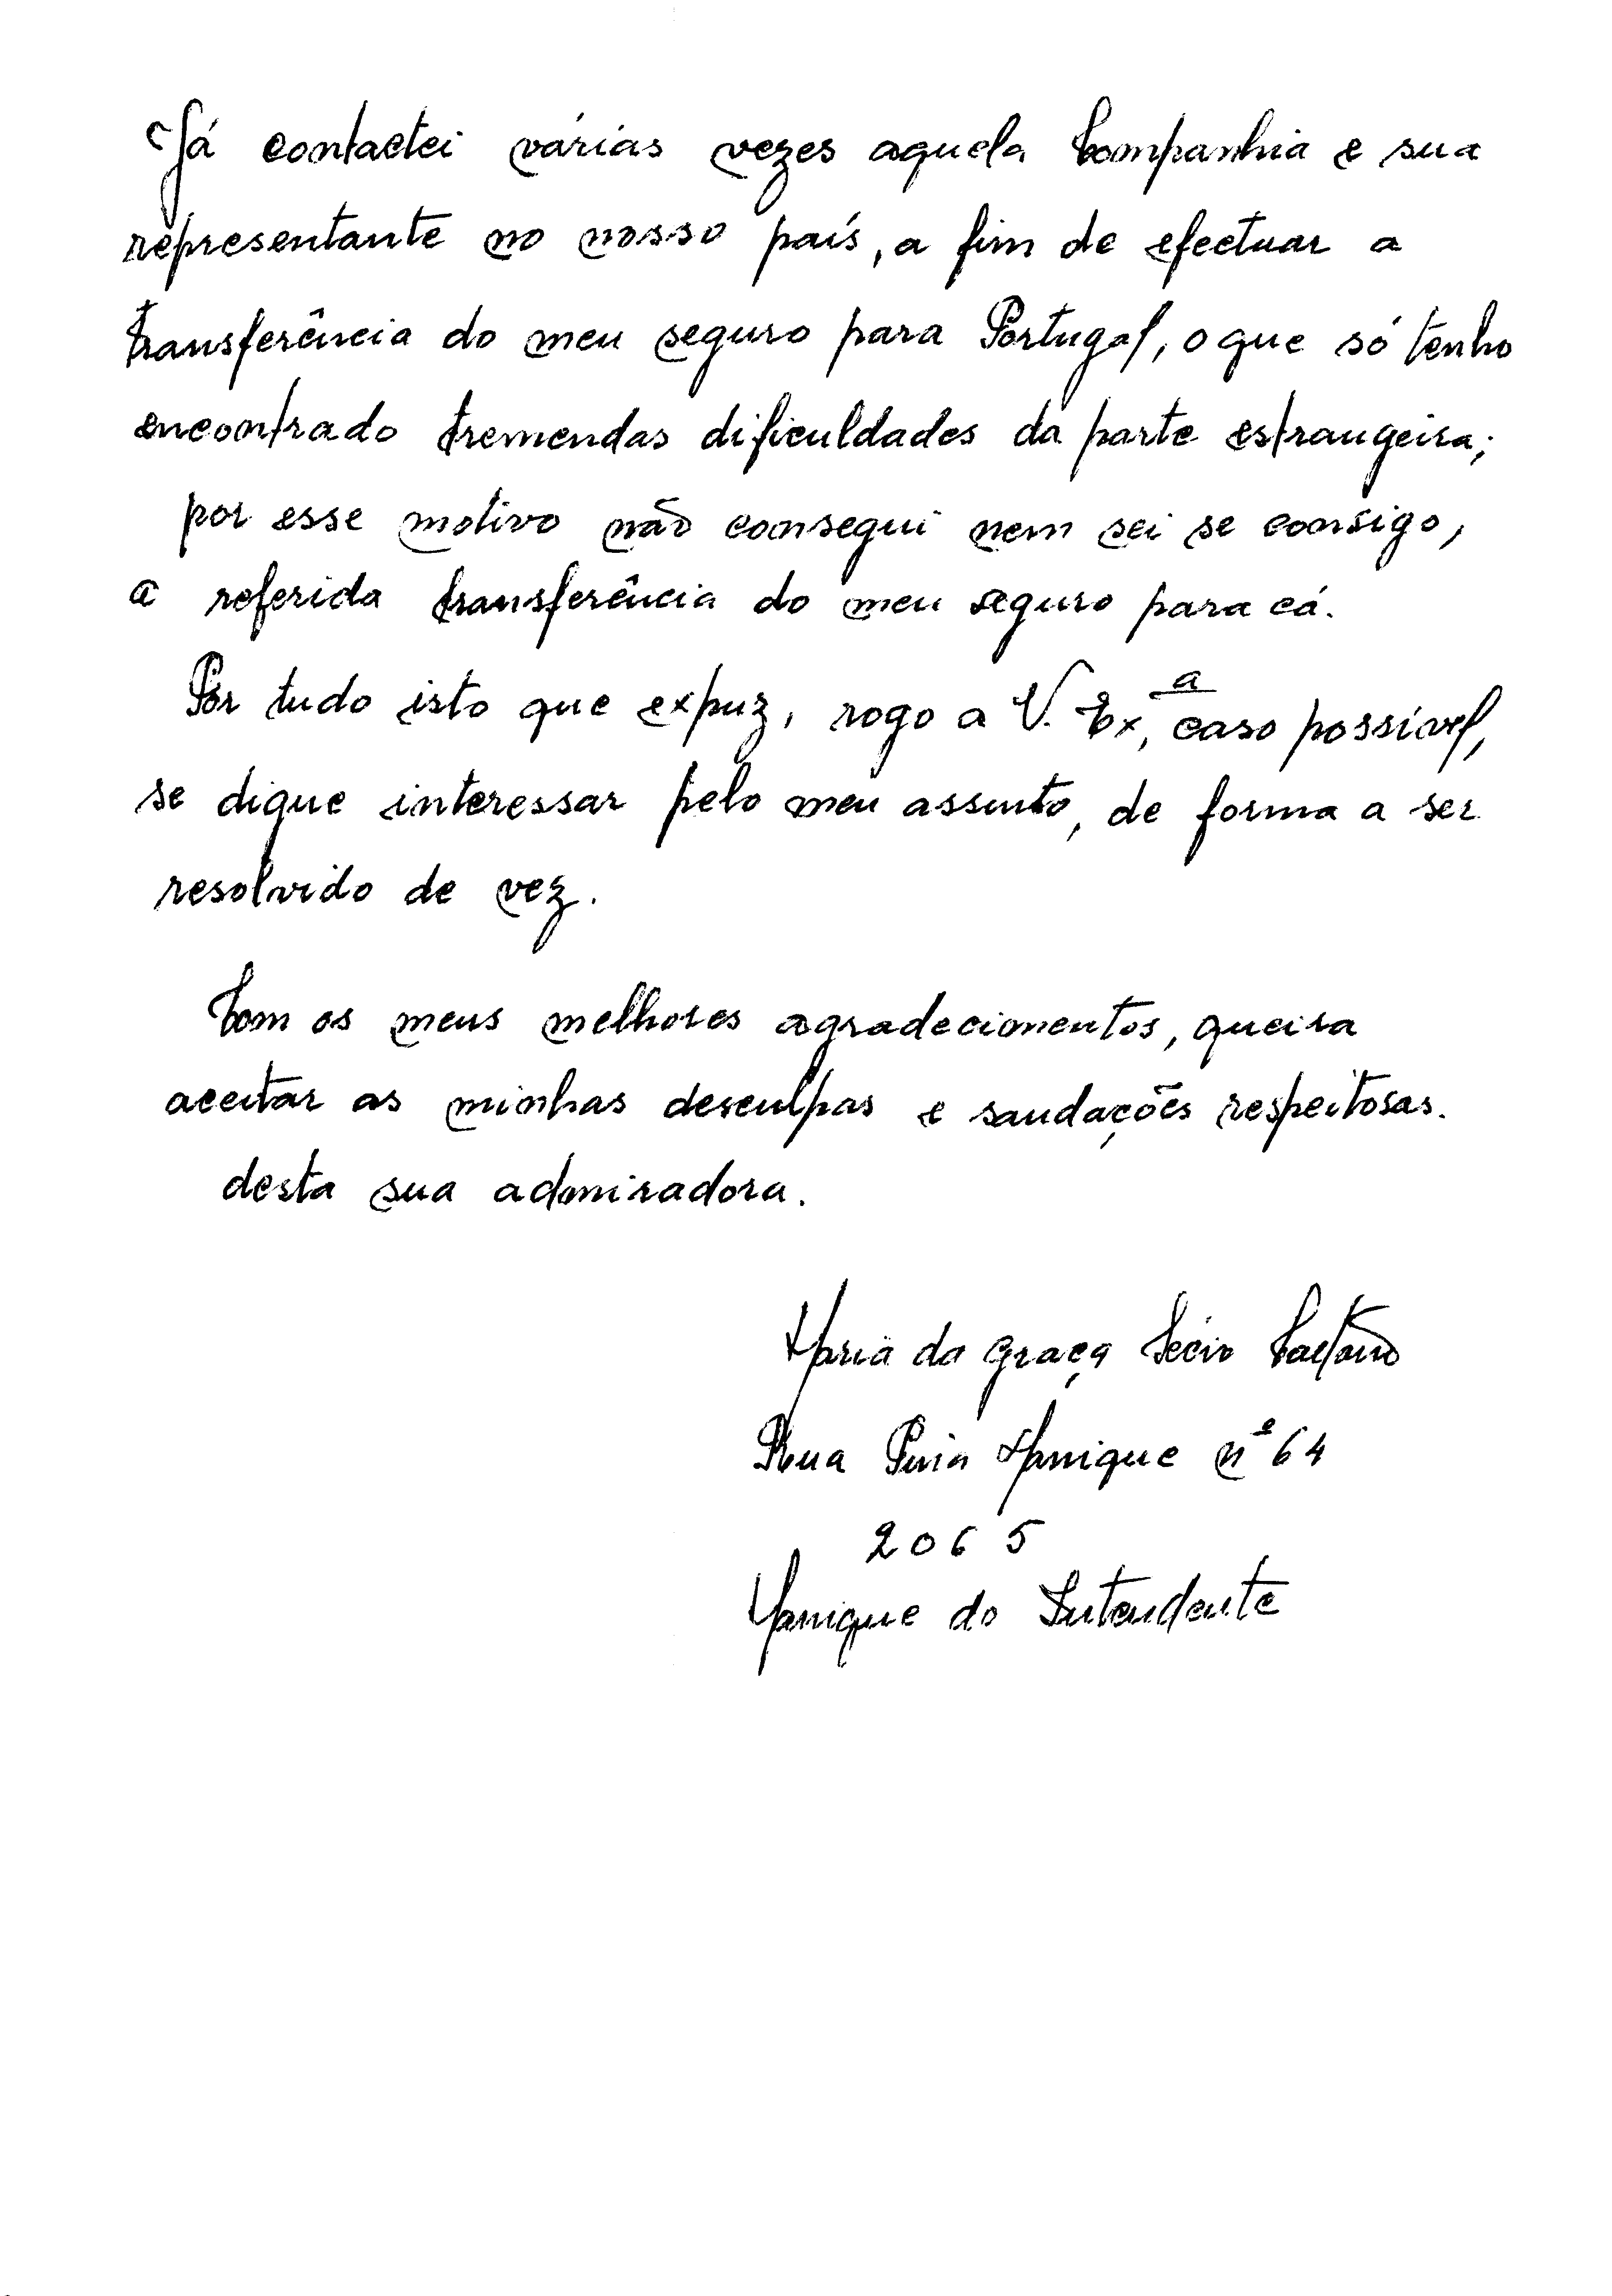 Já contactei várias vezes aquela Companhia e sua
representante no nosso país, a fim de efectuar a
transferência do meu seguro para Portugal, o que só tenho
encontrado tremendas dificuldades da parte estrangeira;
por esse motivo não consegui nem sei se consigo,
a referida transferência do meu seguro para cá.
Por tudo isto que expuz, rogo a V. Ex,ª caso possível,
se digue interessar pelo meu assunto, de forma a ser
resolvido de vez.
Com os meus melhores agradecimentos, queira
aceitar as minhas desculpas e saudações respeitosas.
desta sua admiradora.
Maria da Graça Caetano
Rua Pina Manique nº 64
2065
Manique do Intendente